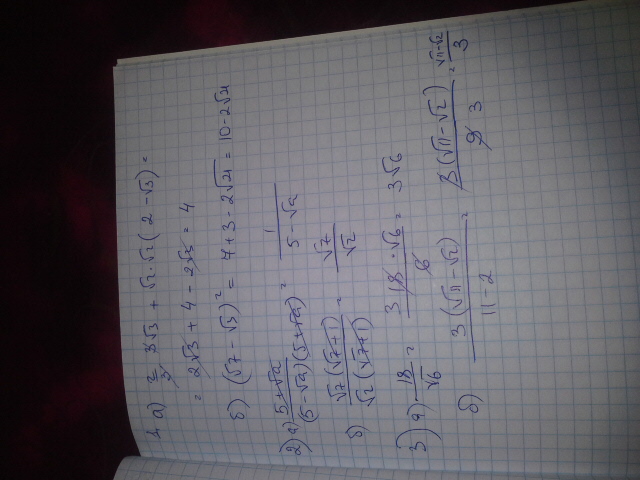 1. а) 2/3 · 3√3 + √2·√2 (2 - √3) =
= 2√3 + 4 - 2√3 = 4
б) (√7 - √3)² = 7 + 3 - 2√21 = 10 - 2√21
2) а) (5+√a)/((5-√a)(5+√a)) = 1/(5-√a)
б) (√7(√7+1))/(√2(√7+1)) = √7/√2
3) а) 18/√6 = (18·√6)/6 = 3√6
б) (3(√11-√2))/(11-2) = (3(√11-√2))/9 = (√11-√2)/3